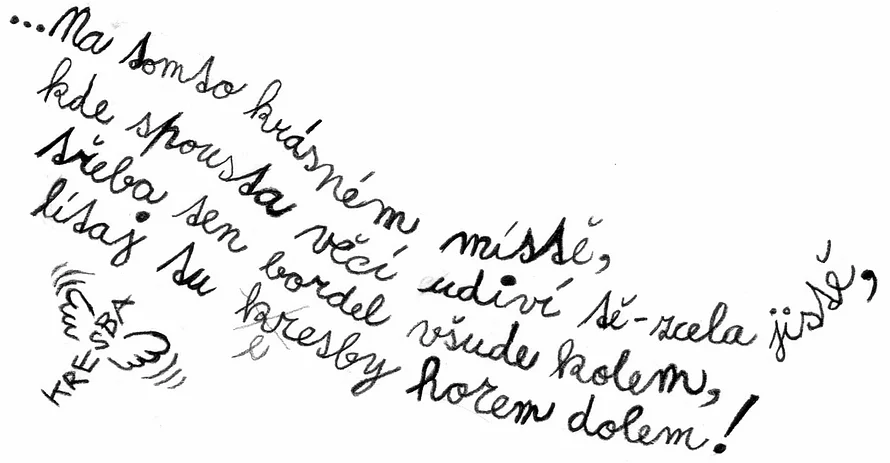 ...Na tomto krásném místě,
kde spousta věcí udiví tě-zcela jistě,
třeba ten bordel všude kolem,
lítaj tu kresby horem dolem!
KRESBA